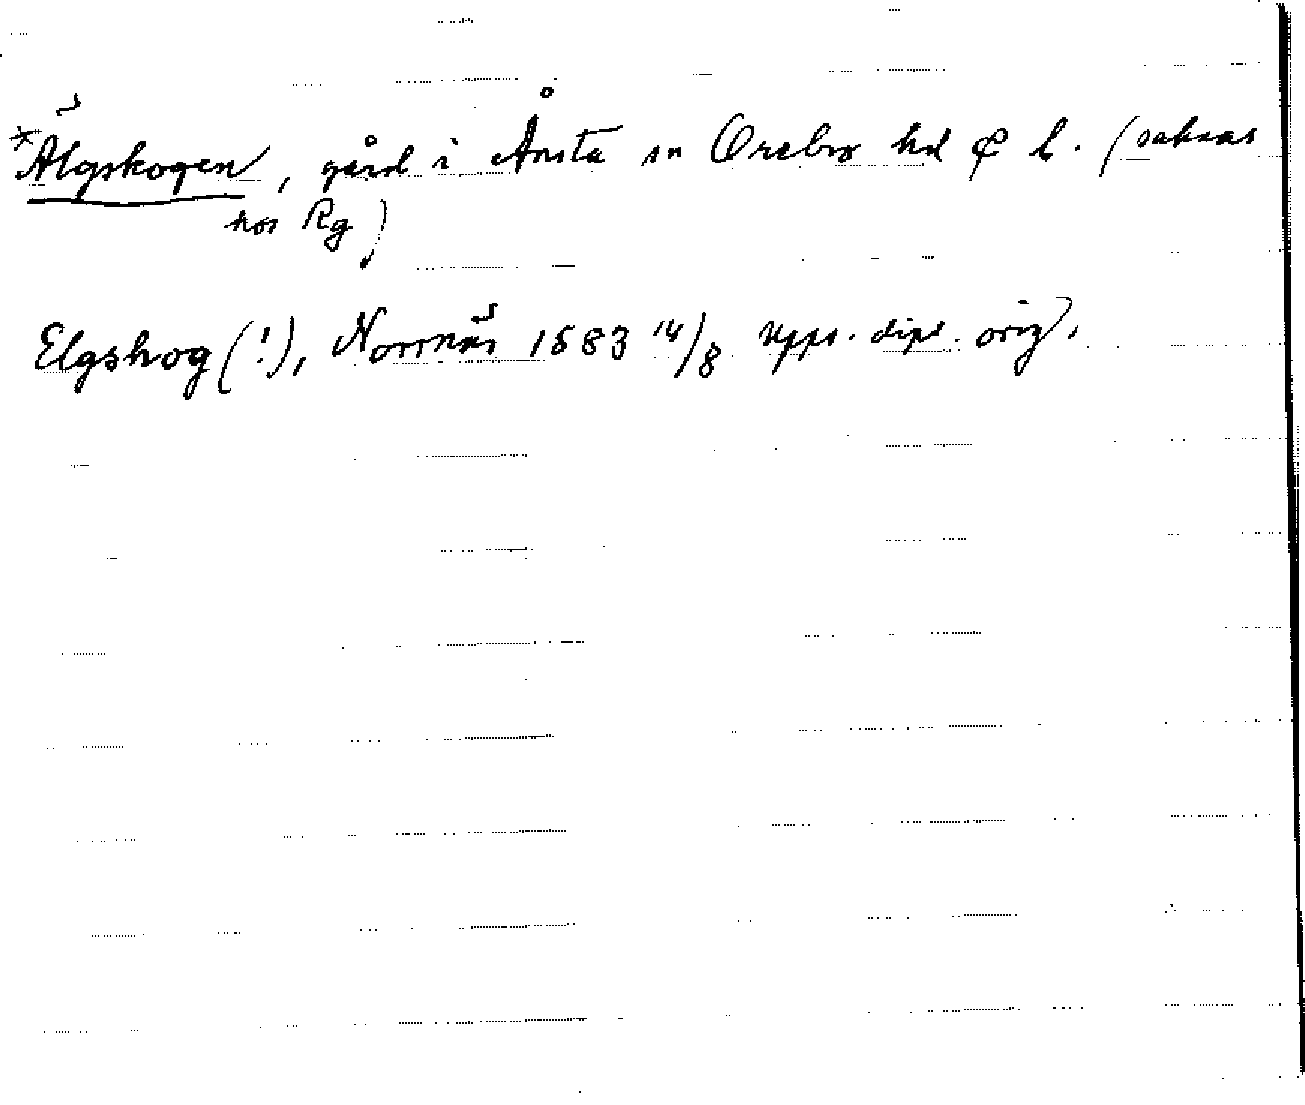 *Älgskogen, gård i Ånsta sn Örebro hd Ö l. (saknas
hos Rg)
Elgskog (!), Norrnäs 1583 14/8 Upps. dipl. orig.